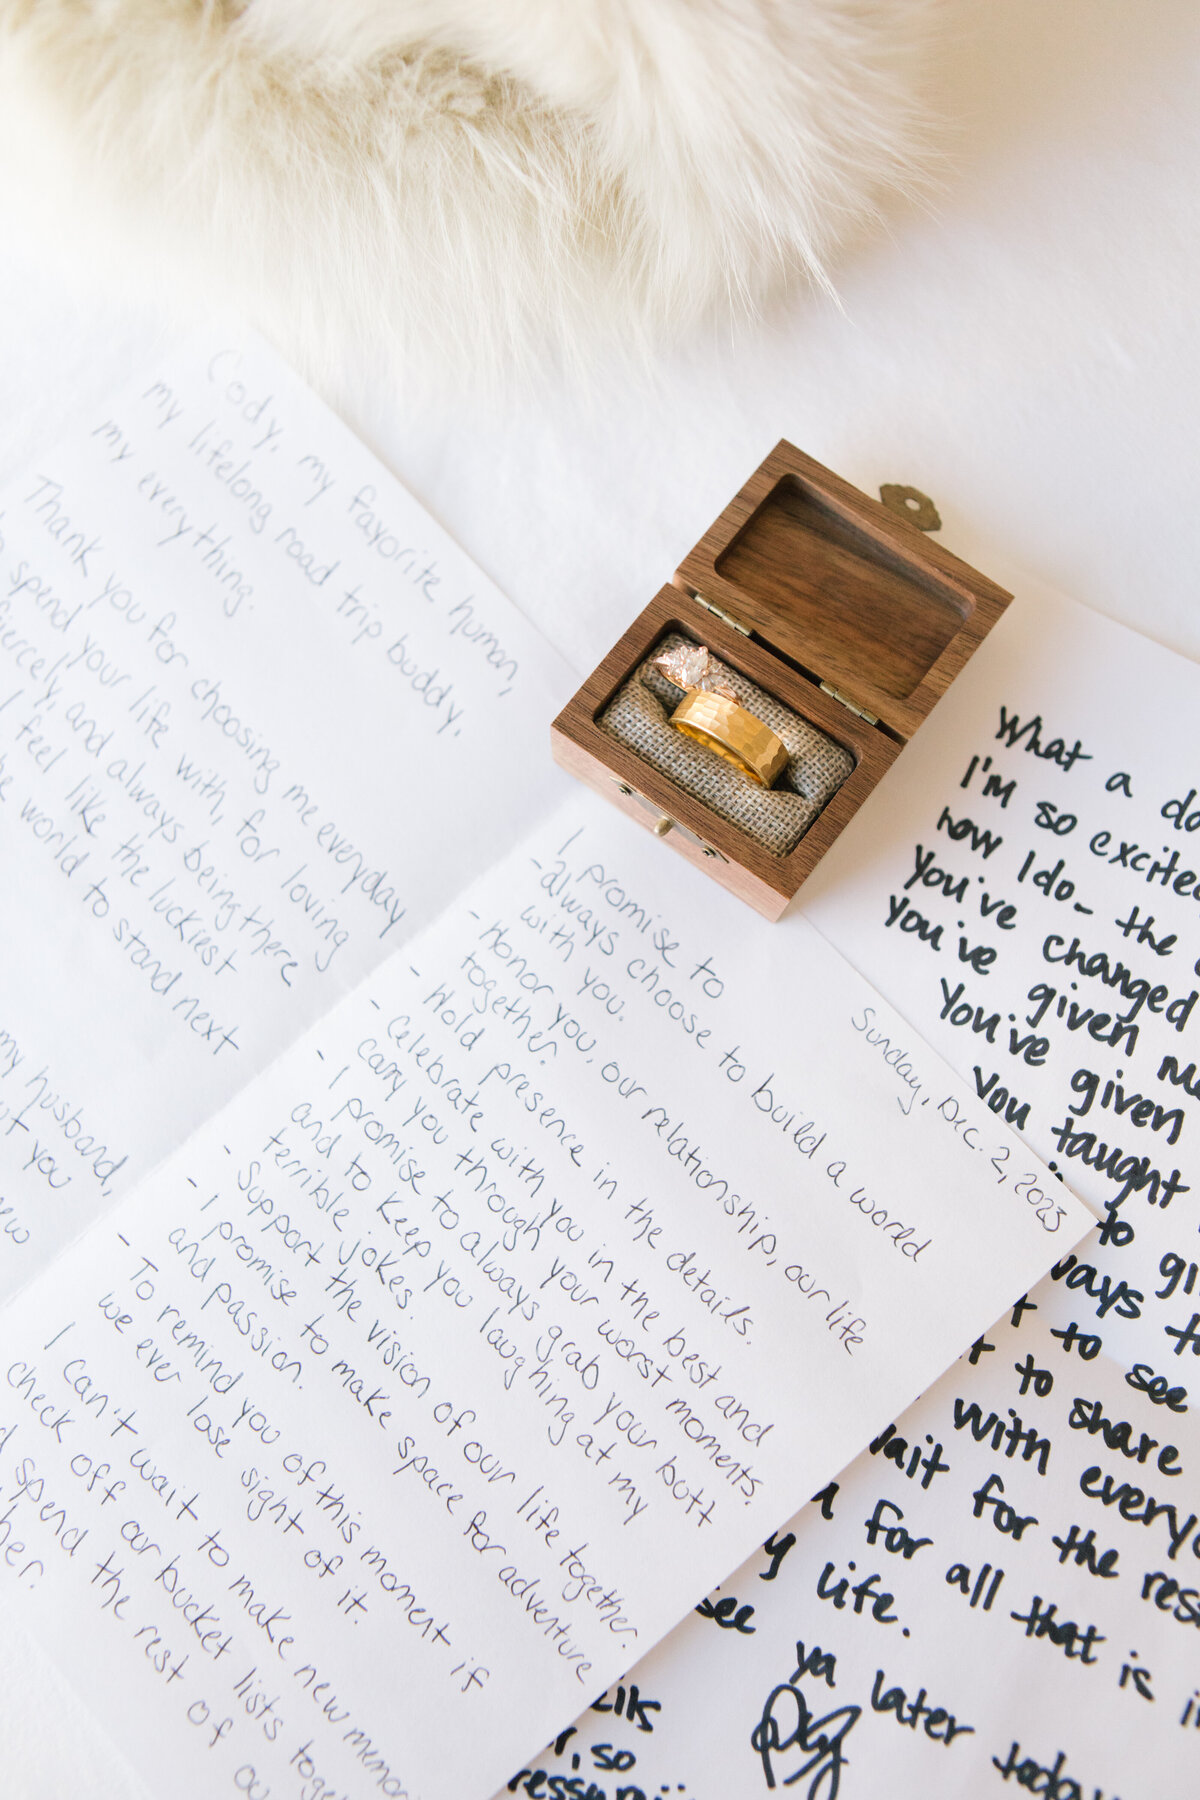 Cody, my favorite human,
my lifelong road trip buddy,
my everything.
Thank you for choosing me everyday
spend your life with, for loving
fiercely, and always being there
I feel like the luckiest
world to stand next
my husband,
you
Sunday, Dec. 2, 2023
I promise to
- always choose to build a world
with you.
- Honor you, our relationship, our life
together.
- Hold presence in the details.
- Celebrate with you in the best and
carry you through your worst moments.
- I promise to always grab your butt
and to keep you laughing at my
terrible jokes.
- Support the vision of our life together.
- I promise to make space for adventure
and passion.
- To remind you of this moment if
we ever lose sight of it.
I can't wait to make new
check off our bucket lists
spend the rest of
What a
I'm so excited
now I do- the
You've changed
You've given
You've given
You taught
to
ways
to see
to share
with
wait for the
for all that is
life.
see
ya later
so